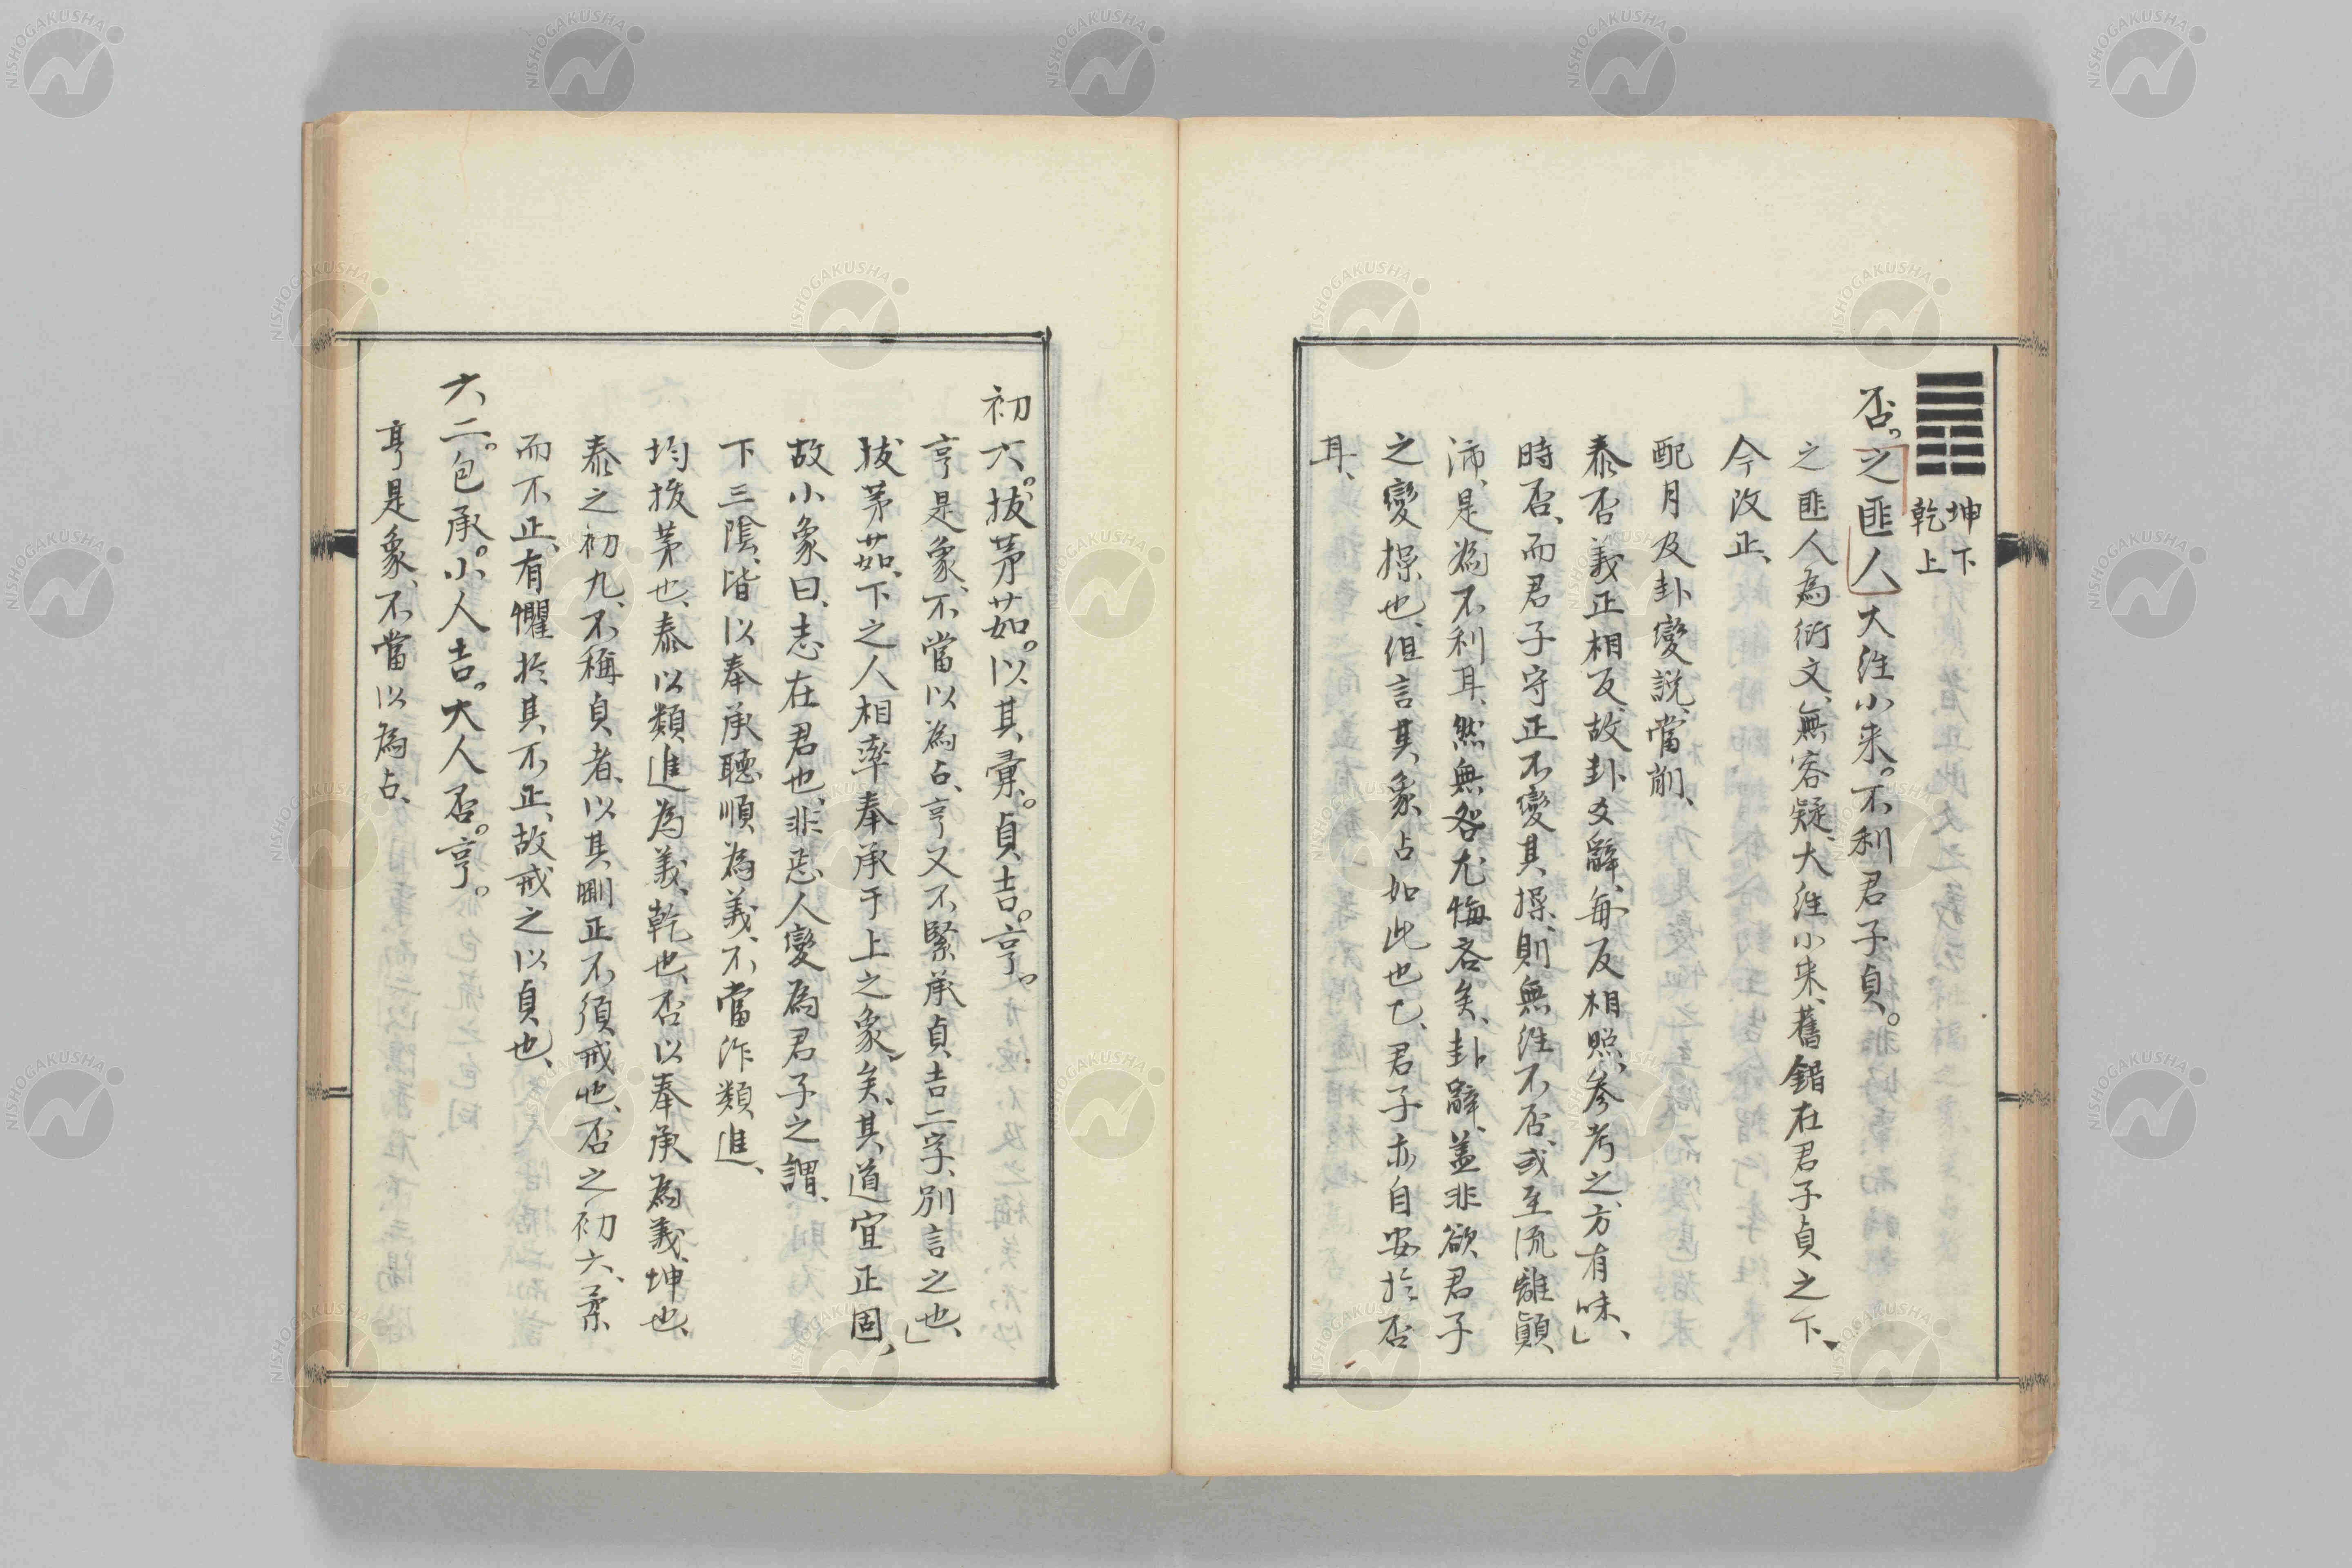 坤下
乾上
否。之匪人大往小来。不利君子貞。
之匪人為衍文、無容疑、大往小来、舊錯在君子貞之下、
今改正、
配月及卦變説、當削、
泰否義正相反、故卦爻辭、每反相照、参考之、方有味、」
時否、而君子守正不變其操、則無往不否、或至流離顛
沛、是為不利耳、然無咎尤悔吝矣、卦辭、蓋非欲君子
之變操也、但言其象占如此也已、君子亦自安於否
耳、
初六。拔茅茹。以其彙。貞吉。亨。
亨是象、不當以為占、亨又不緊承貞吉二字、別言之也、」
拔茅茹、下之人相率奉承于上之象、矣、其道宜正固、
故小象曰、志在君也、非惡人變為君子之謂、
下三陰、皆以奉承聽順為義、不當作類進、
均拔茅也、泰以類進為義、乾也、否以奉承為義、坤也、
泰之初九、不稱貞者、以其剛正不須戒也、否之初六、柔
而不正、有懼於其不正、故戒之以貞也、
六二。包承。小人吉。大人否。亨。
亨是象、不當以為占、